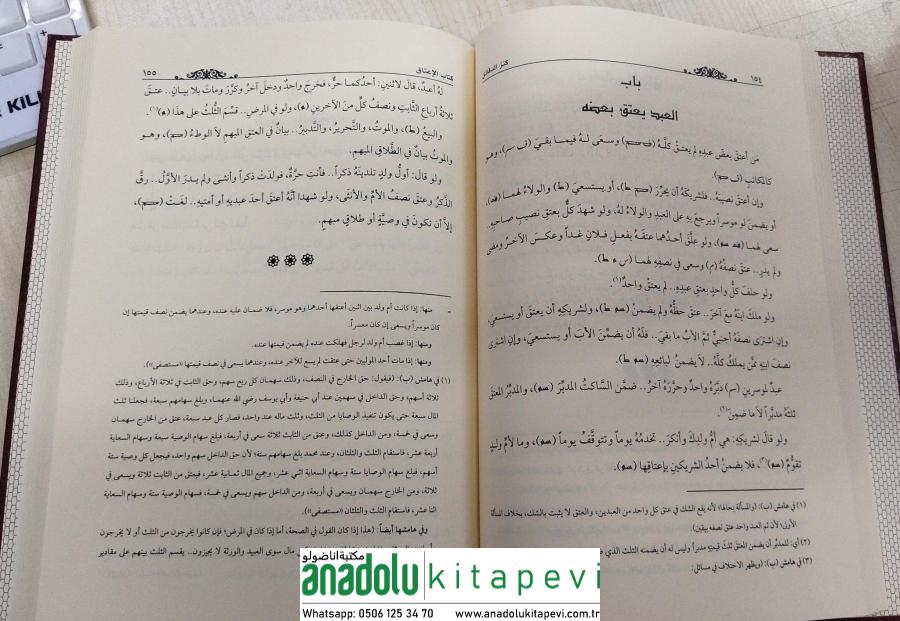 ١٥٤
كنز الدقائق
باب
العبد يعتق بعضه
مَن أعتق بعضَ عبدِهِ لم يعتق كلُّهُ وسعى لهُ فيما بقيَ، وهو
كالمكاتبِ
وإن أعتق نصيبَهُ.. فلشريكهِ أن يحرِّرَ، أو يستسعيَ والولاءُ لهما،
أو يضمنَ لو موسراً ويرجعُ بهِ على العبدِ والولاءُ لهُ، ولو شهدَ كلٌّ بعتقِ نصيبِ صاحبِهِ..
سعى لهما، ولو علَّق أحدُهما عتقَهُ بفعلِ فلانٍ غداً وعكسَ الآخرُ ومضى
ولم يدرِ.. عتقَ نصفُهُ وسعى في نصفِهِ لهما
ولو حلفَ كلُّ واحدٍ بعتقِ عبدِهِ.. لم يعتق واحدٌ(١).
ولو ملكَ ابنَهُ معَ آخرَ.. عتقَ حظُّهُ ولم يضمنْ، ولشريكهِ أن يعتقَ أو يستسعيَ،
وإنِ اشترى نصفَهُ أجنبيٌّ ثمَّ الأبُ ما بقيَ.. فلَهُ أن يضمِّنَ الأبَ أو يستسعيَ، وإنِ اشترى
نصفَ ابنِهِ ممَّن يملكُ كلَّهُ.. لا يضمنُ لبائعِهِ
عبدٌ لموسرينِ دبَّرَهُ واحدٌ وحرَّرَهُ آخرُ.. ضمَّن الساكتُ المدبِّرَ، والمدبِّرُ المعتقَ
ثلثَهُ مدبَّراً لا ما ضمنَ(٢).
ولو قالَ لشريكِهِ: هيَ أمُّ ولدِكَ وأنكرَ.. تخدمُهُ يوماً وتتوقَّفُ يوماً، وما لأمِّ ولدٍ
تقوُّمٌ(٣)، فلا يضمنُ أحدُ الشريكينِ بإعتاقِها
(١) في هامش (ب): (والمسألة بحالها؛ لأنه يقع الشك في عتق كل واحد من العبدين، والعتق لا يثبت بالشك، بخلاف المسألة
الأولى؛ لأن ثم العبد واحد عتق نصفه بيقين).
(٢) أي: للمدبِّر أن يضمن المعتق ثلثَ قيمتِهِ مدبراً وليس له أن يضمنه الثلث الذي
(٣) في هامش (ب): (ويظهر الاختلاف في مسائل:
كتاب الإعتاق
١٥٥
لهُ أعبدٌ، قالَ لاثنينِ: أحدُكما حرٌّ، فخرجَ واحدٌ ودخلَ آخرُ وكرَّرَ وماتَ بلا بيانٍ.. عتقَ
ثلاثةُ أرباعِ الثَّابتِ ونصفُ كلٍّ منَ الآخرينِ، ولو في المرضِ.. قسِّمَ الثُّلثُ على هذا(١).
والبيعُ، والموتُ، والتَّحريرُ، والتَّدبيرُ.. بيانٌ في العتقِ المبهمِ لا الوطءُ، وهو
والموتُ بيانٌ في الطَّلاقِ المبهمِ.
ولو قالَ: أوَّلُ ولدٍ تلدينَهُ ذكراً.. فأنتِ حرَّةٌ، فولدَتْ ذكراً وأنثى ولم يدرَ الأوَّلُ.. رقَّ
الذَّكرُ وعتقَ نصفُ الأمِّ والأنثى، ولو شهدا أنَّهُ أعتقَ أحدَ عبديهِ أو أمتيهِ.. لغَتْ،
إلَّا أن تكونَ في وصيَّةٍ أو طلاقٍ مبهمٍ.
- منها: إذا كانت أم ولد بين اثنين أعتقها أحدهما وهو موسر، فلا ضمان عليه عنده، وعندهما يضمن نصف قيمتها إن
كان موسراً ويسعى إن كان معسراً.
ومنها: إذا غصب أم ولد لرجل فهلكت عنده لم يضمن قيمتها عنده.
ومنها: إذا مات أحد الموليين حتى عتقت لم يسع للآخر عنده، وعندهما يسعى في نصف قيمتها «مستصفى»).
(١) في هامش (ب): (فيقول: حق الخارج في النصف، وذلك سهمان كل ربع سهم، وحق الثابت في ثلاثة الأرباع، وذلك
ثلاثة أسهم، وحق الداخل في سهمين عند أبي حنيفة وأبي يوسف رضي الله عنهما، وبلغ سهامهم سبعة، فجعلنا ثلث
المال سبعة حتى يكون تنفيذ الوصايا من الثلث، وثلث ماله عند واحد، فصار كل عبد سبعة، عتق من الخارج سهمان
وسعى في خمسة، ومن الداخل كذلك، وعتق من الثابت ثلاثة سعى في أربعة، فبلغ سهام الوصية سبعة وسهام السعاية
أربعة عشر، فاستقام الثلث والثلثان، وعند محمد بلغ سهامهم ستة؛ لأن حق الداخل سهم واحد، فيجعل كل وصية ستة
أسهم، فبلغ سهام الوصايا ستة وسهام السعاية اثني عشر، وجميع المال ثمانية عشر، فيعتق من الثابت ثلاثة ويسعى في
ثلاثة، ومن الخارج سهمان ويسعى في أربعة، ومن الداخل سهم ويسعى في خمسة، فسهام الوصية ستة وسهام السعاية
اثنا عشر، فاستقام الثلث والثلثان «مستصفى»).
وفي هامشها أيضاً: (هذا إذا كان القول في الصحة، أما إذا كان في المرض؛ فإن كانوا يخرجون من الثلث أو لا يخرجون
مال سوى العبيد والورثة لا يجيزون.. يقسم الثلث بينهم على مقادير
مكتبة اناضولو
anadolu kitapevi
Whatsapp: 0506 125 34 70 www.anadolukitapevi.com.tr